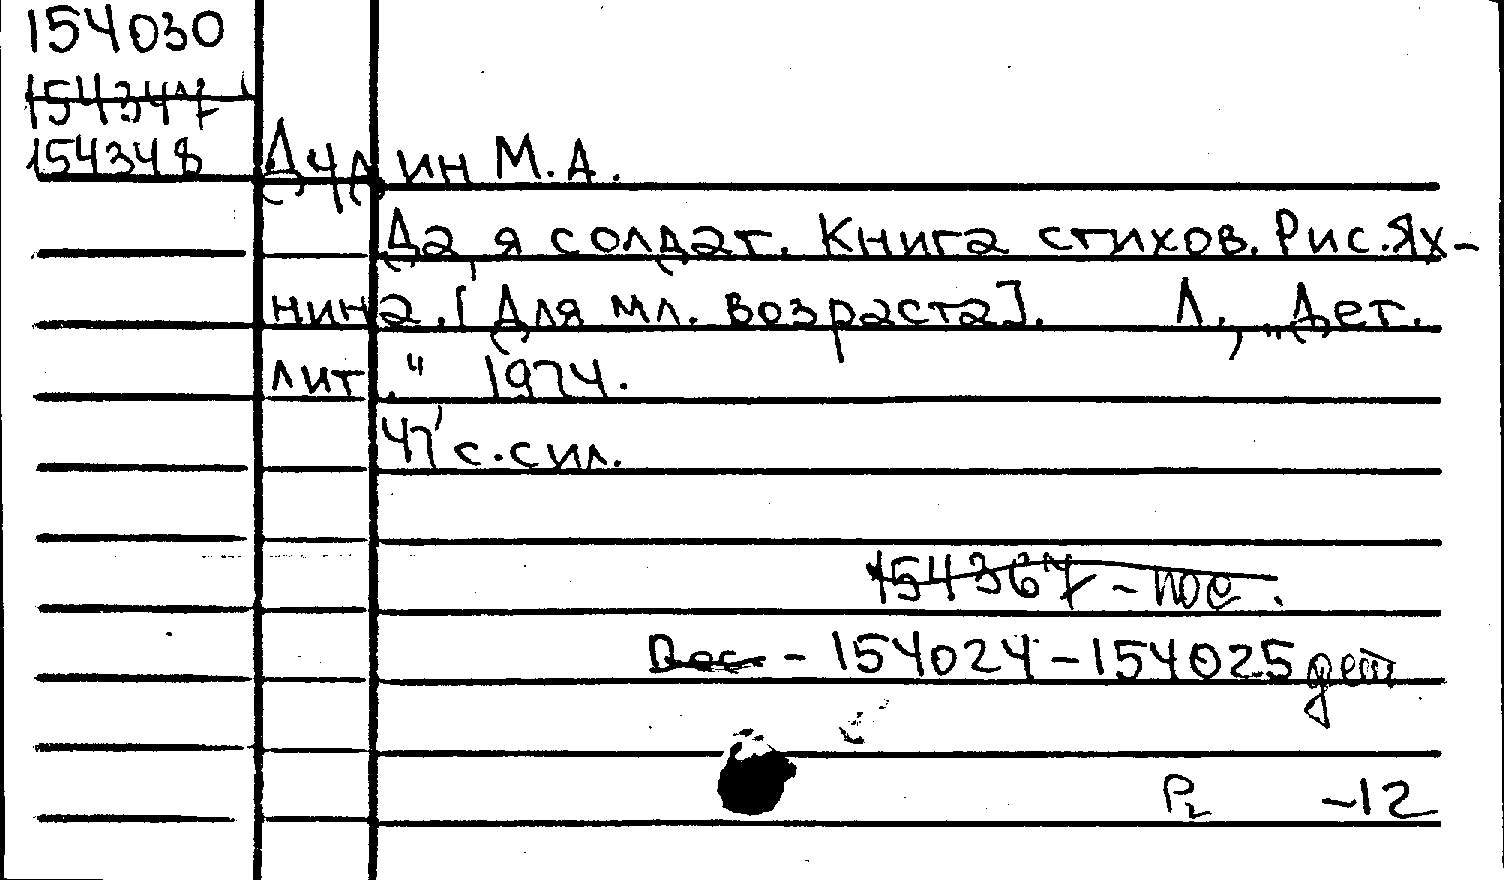 154030
154347
154348
Дудин М. А.
Да, я солдат. Книга стихов. Рис. Ях-
нина. [Для мл. возраста]. Л., „Дет.
лит.“ 1974.
47 с. с ил.
154367 - пос.
- 154024 - 154025 дет
Р2 -12